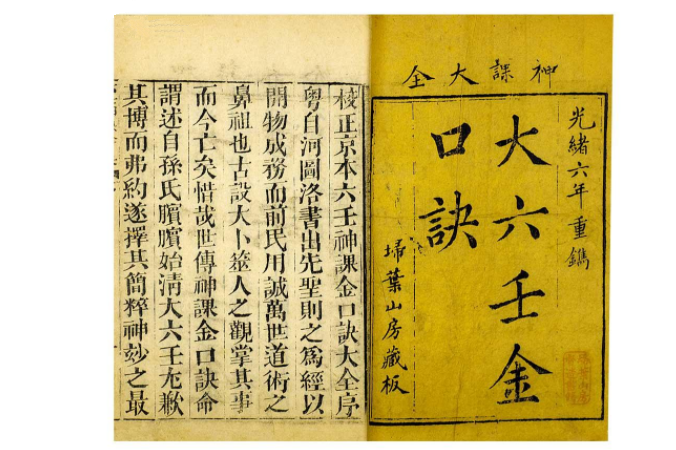 神課大全
光緒六年重鐫
大六壬金
口訣
埽葉山房藏板
校正京本六壬神課金口訣大全序
粤自河圖洛書出先聖則之為經以
開物成務而前民用誠萬世道術之
鼻祖也古設大卜簭人之觀掌其事
而今亡矣惜哉世傳神課金口訣命
謂述自孫氏臏臏始清大六壬尢歉
其博而弗約遂擇其簡粹神玅之最